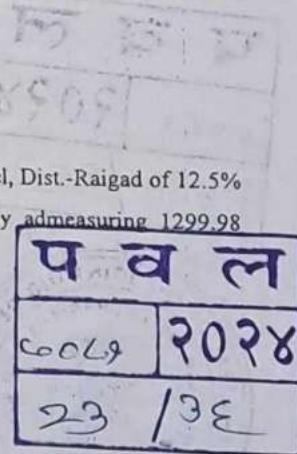 el, Dist.-Raigad of 12.5%
y admeasuring 1299.98
प व ल
२०२४
२३ / ३६